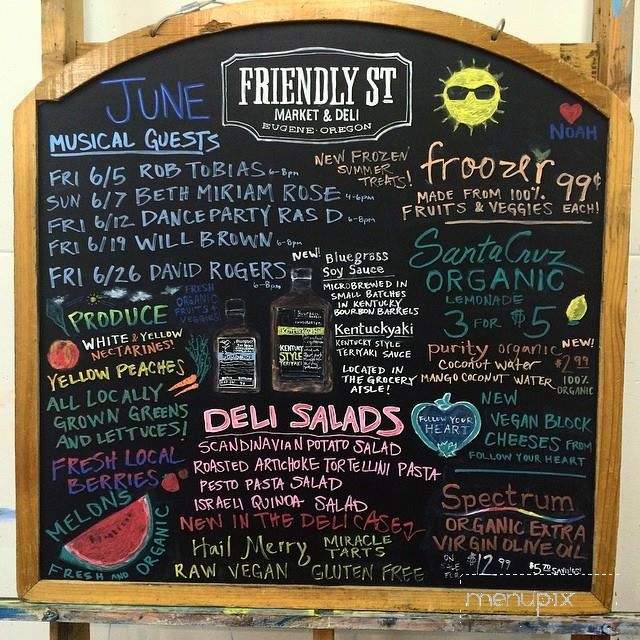 JUNE
FRIENDLY ST
MARKET & DELI
EUGENE · OREGON
NOAH
MUSICAL GUESTS
FRI 6/5 ROB TOBIAS 6-8pm
SUN 6/7 BETH MIRIAM ROSE 4-6pm
FRI 6/12 DANCEPARTY RAS D 6-8pm
FRI 6/19 WILL BROWN 6-8pm
FRI 6/26 DAVID ROGERS
6-8pm
NEW FROZEN
SUMMER
TREATS!
froozer
MADE FROM 100%
FRUITS & VEGGIES
99¢
EACH!
NEW!
Bluegrass
Soy Sauce
MICROBREWED IN
SMALL BATCHES
IN KENTUCKY
BOURBON BARRELS
Kentuckyaki
KENTUCKY STYLE
TERIYAKI SAUCE
LOCATED IN
THE GROCERY
AISLE!
KENTUCKY
STYLE
TERIYAKI
Santa Cruz
ORGANIC
LEMONADE
3 FOR $5
purity organic
coconut water
MANGO COCONUT WATER
NEW!
$2.99
100%
ORGANIC
FRESH
ORGANIC
FRUITS &
VEGGIES
PRODUCE
WHITE & YELLOW
NECTARINES!
YELLOW PEACHES
ALL LOCALLY
GROWN GREENS
AND LETTUCES!
FRESH LOCAL
BERRIES
MELONS
FRESH AND ORGANIC
DELI SALADS
SCANDINAVIAN POTATO SALAD
ROASTED ARTICHOKE TORTELLINI PASTA
PESTO PASTA SALAD
ISRAELI QUINOA SALAD
NEW IN THE DELI CASE
Hail Merry MIRACLE
TARTS
RAW VEGAN GLUTEN FREE
FOLLOW YOUR
HEART
NEW
VEGAN BLOCK
CHEESES FROM
FOLLOW YOUR HEART
Spectrum
ORGANIC EXTRA
VIRGIN OLIVE OIL
ON
SALE
FOR
$12.99
$5.70 SAVINGS!
menupix